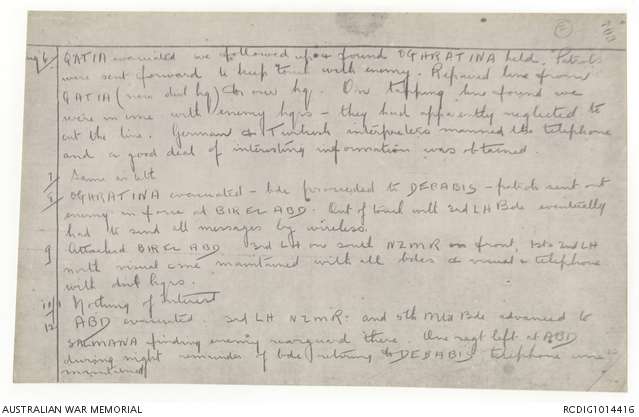 Aug 6/ QATIA evacuated we followed up & found OGHRATINA held. Patrols
were sent forward to keep touch with enemy. Repaired line from
QATIA (new divl hq) to our hq. On tapping line found we
were in comn with enemy hqrs - they had apparently neglected to
cut the line. German & Turkish interpreters manned the telephone
and a good deal of interesting information was obtained
7/ Same as
8/ OGHRATINA evacuated - bde proceeded to DEBABIS - patrols sent out
enemy in force at BIR EL ABD. Out of touch with 3rd LH Bde eventually
had to send all messages by wireless.
9 Attacked BIR EL ABD 3rd LH on south NZMR on front, 1st & 2nd LH
north visual comn maintained with all bdes & visual & telephone
with divl hqrs.
10/11 Nothing of interest
12/ ABD evacuated 3rd LH NZMR: and 5th Mtd Bde advanced to
SALMANA finding enemy rearguard there. One regt left at ABD
during night remainder of bde returning to DEBABIS telephone comn
maintained
AUSTRALIAN WAR MEMORIAL
RCDIG1014416